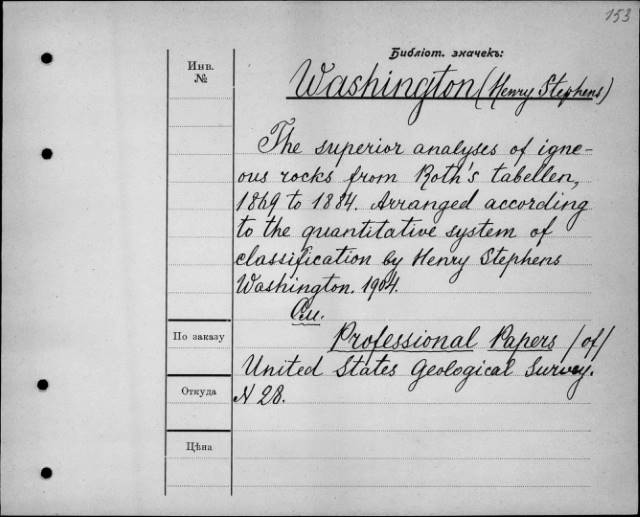 153
Библіот. значекъ:
Инв.
№
Washington (Henry Stephens)
The superior analyses of igne-
ous rocks from Roth's tabellen,
1869 to 1884. Arranged according
to the quantitative system of
classification by Henry Stephens
Washington. 1904.
См.
По заказу
Professional Papers /of/
United States Geological Survey.
Откуда
N 28.
Цѣна